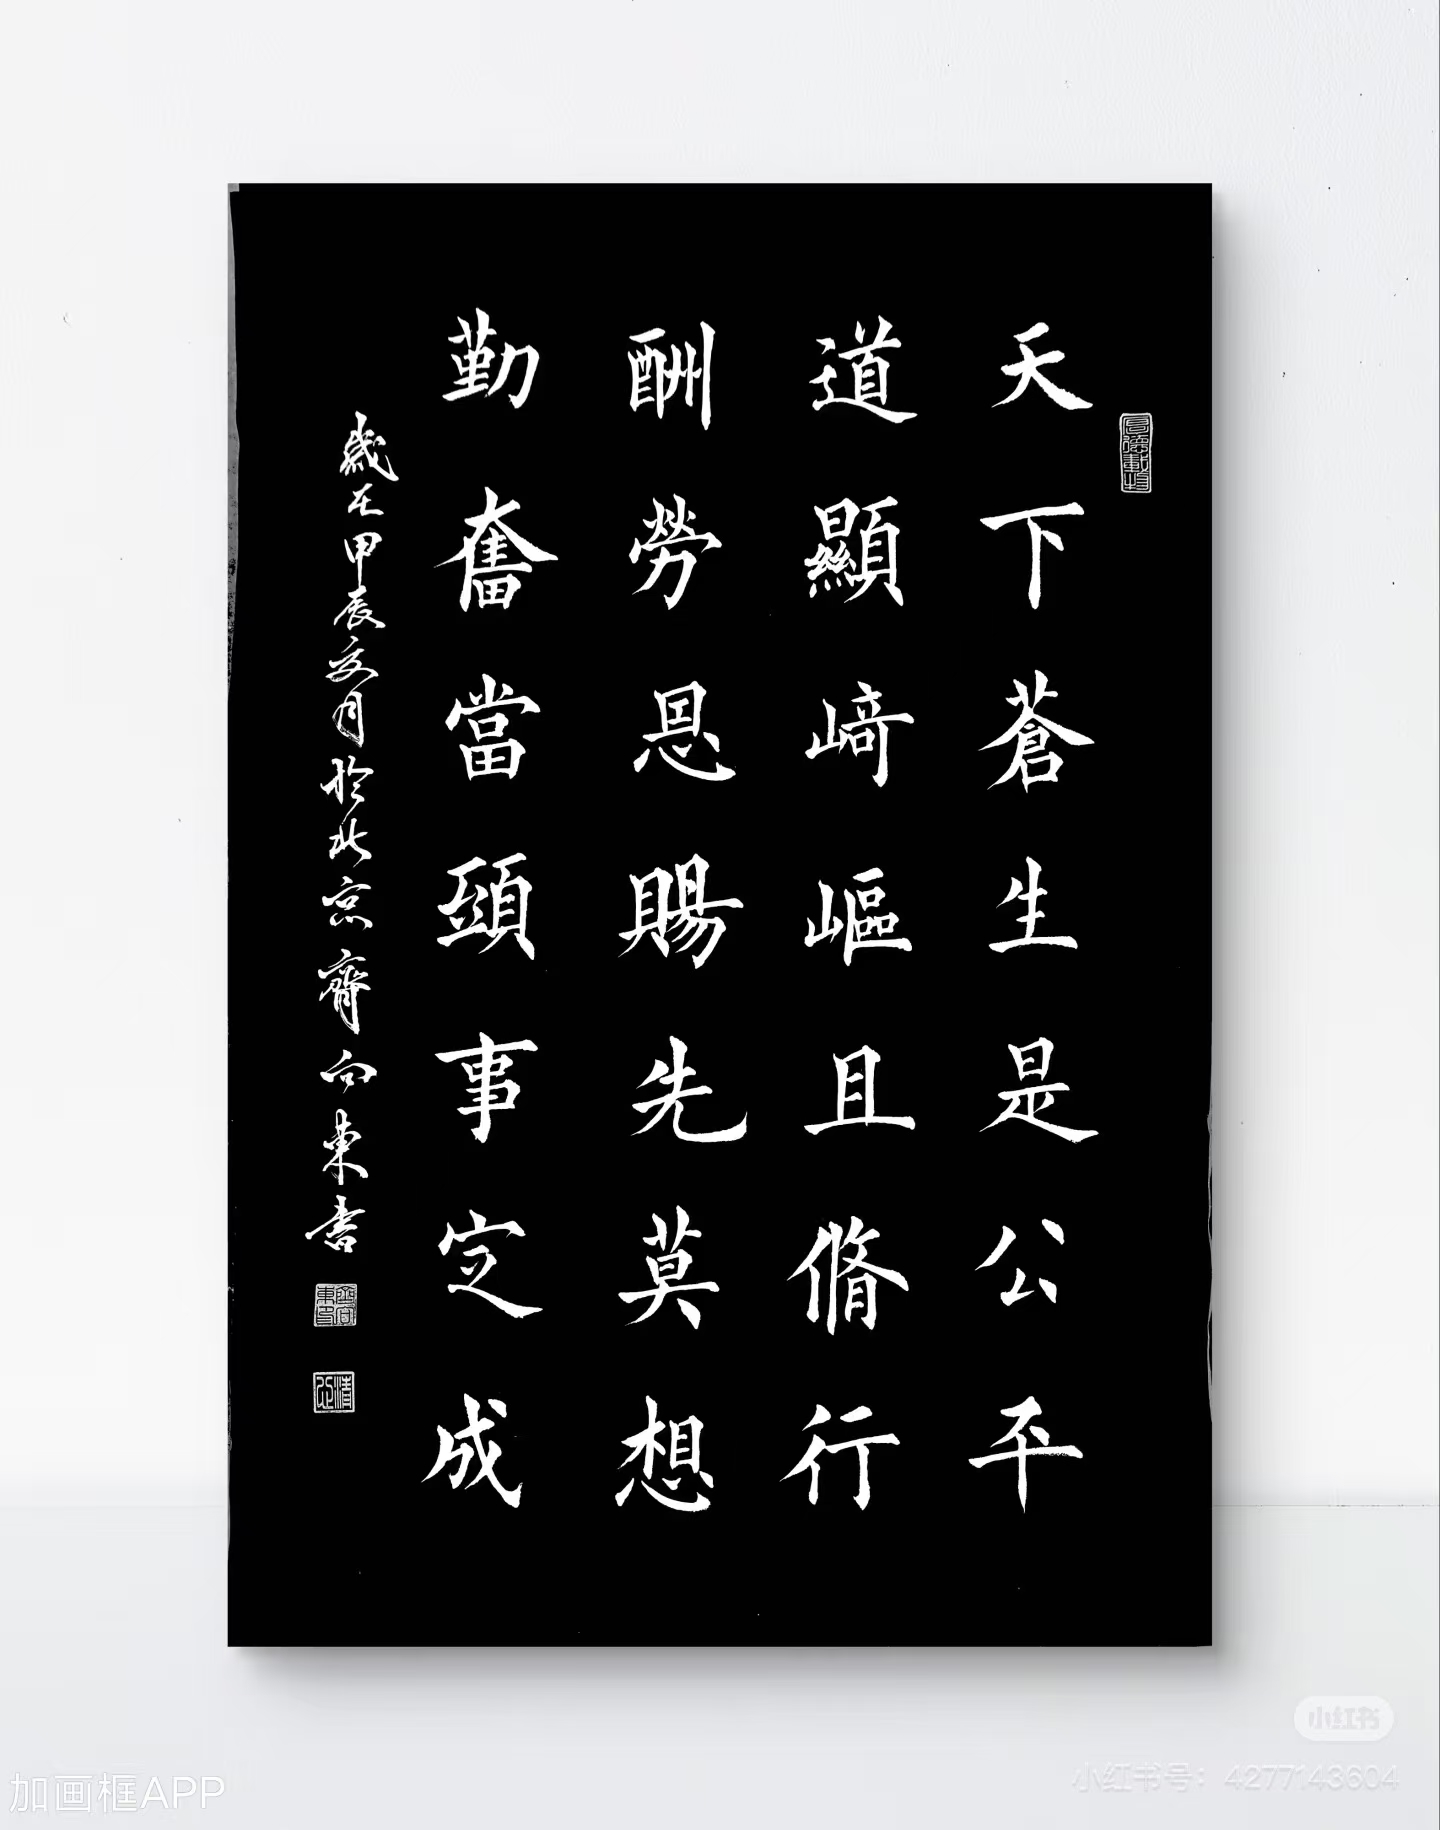 天下蒼生是公平
道顯﨑嶇且脩行
酬勞恩賜先莫想
勤奮當頭事定成
歲在甲辰文月於北京齊向東書
厚德載物
齊向東印
加画框APP
小红书
小红书号：4277143604